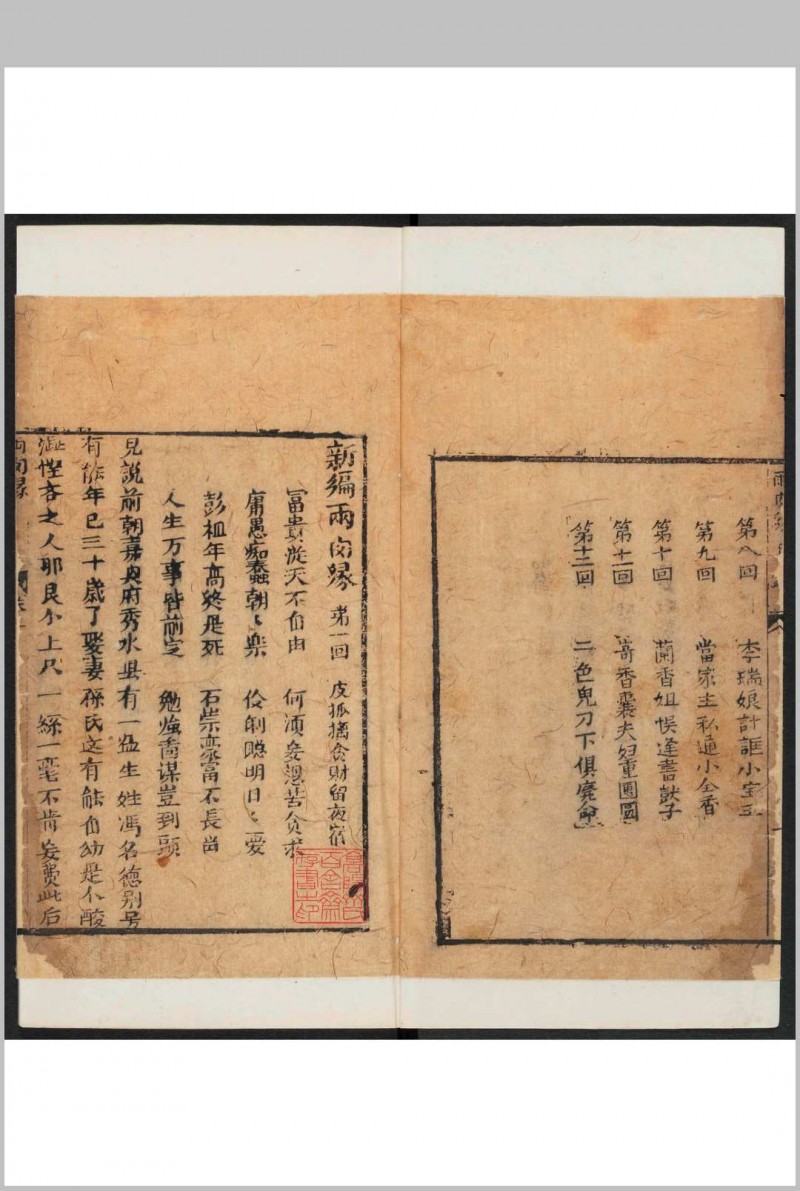 第八回 李瑞娘計誆小宝玉
第九回 當家主私通小全香
第十回 蘭香姐悞逢書獃子
第十一回 寄香囊夫妇重圓圓
第十二回 二色鬼刀下俱廢命
新编兩肉緣 第一回 皮狐擒貪財留夜宿
冨貴從天不自由 何須妄想苦貪求
庸愚痴蠢朝〻樂 伶俐聰明日〻憂
彭祖年高終是死 石崇豪富不長留
人生万事皆前定 勉強喬謀豈到頭
見說前朝嘉兴府秀水县有一监生姓馮名德别号
有能年已三十歲了娶妻孫氏这有能自幼是个酸
澁悭吝之人那艮个上尺一絲一毫不肯妄費此后